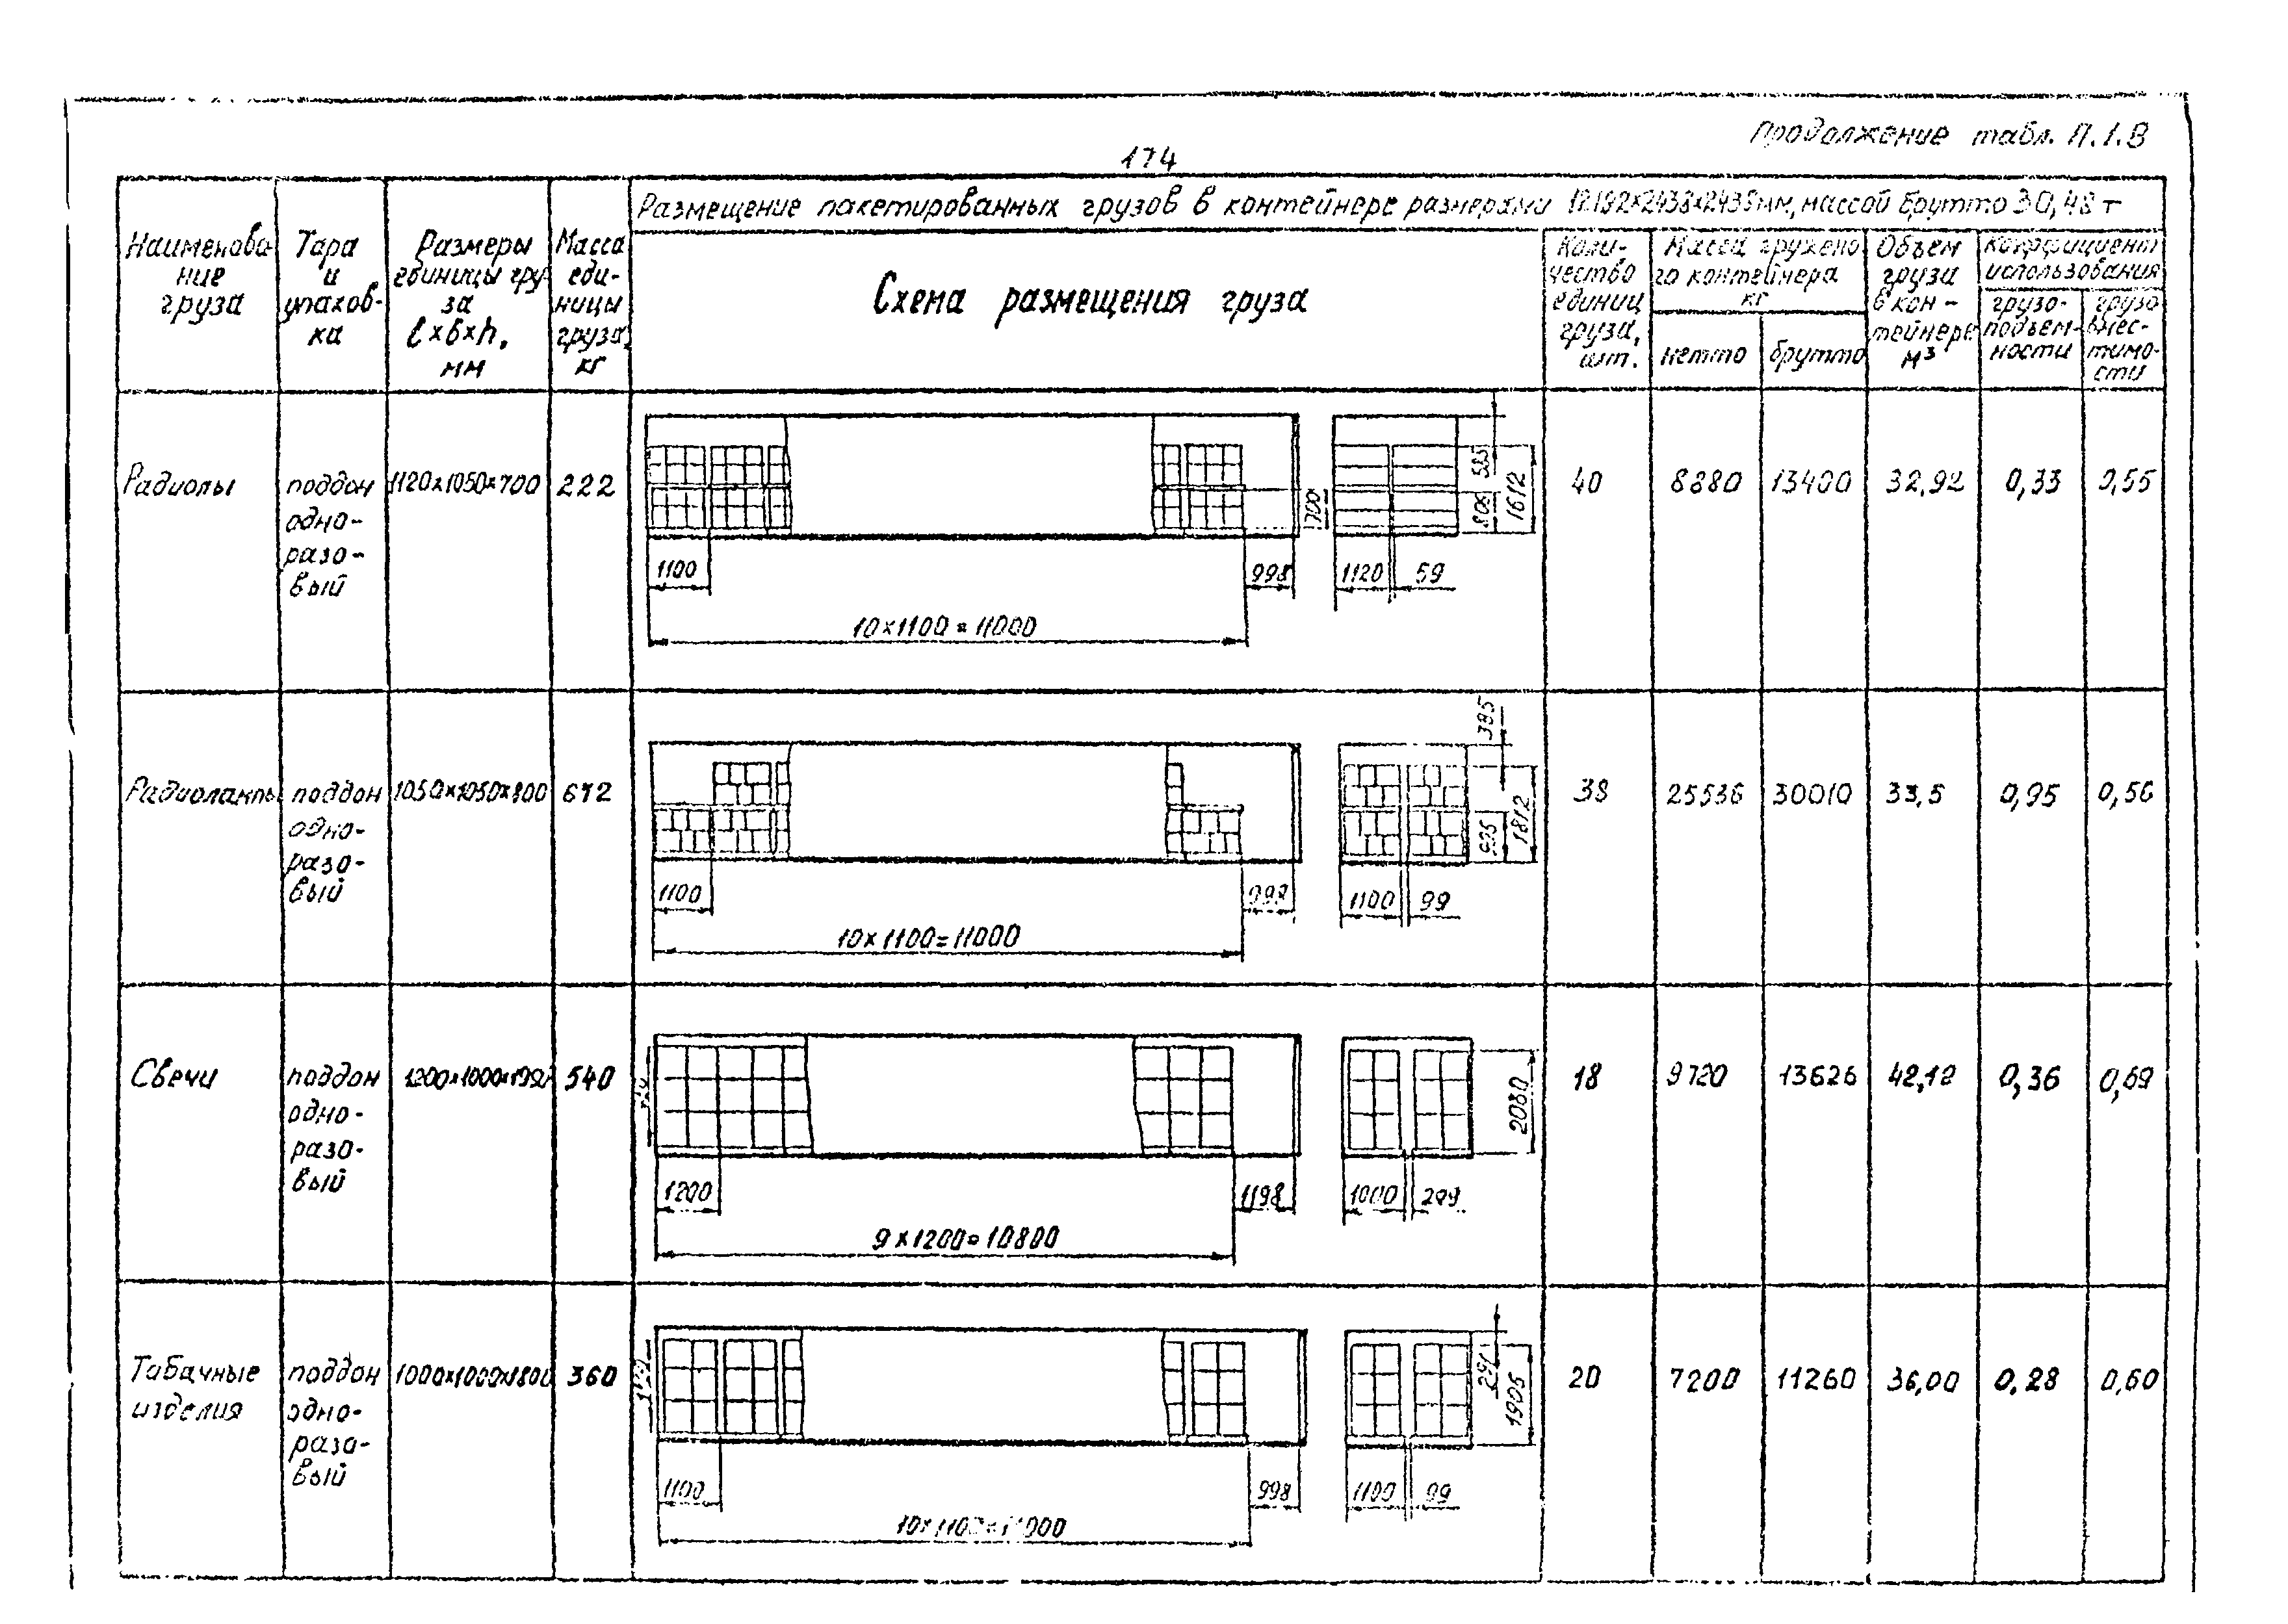 Продолжение табл. П.1.8
174
Размещение пакетированных грузов в контейнере размерами 12192×2438×2438мм, массой брутто 30,48 т
Наименова
ние
груза
Тара
и
упаков-
ка
Размеры
единицы гру
за
l×b×h,
мм
Масса
еди-
ницы
груза,
кг
Схема размещения груза
Коли-
чество
единиц
груза,
шт.
Масса гружено
го контейнера
кг
нетто
брутто
Объем
груза
в кон-
тейнере
м³
Коэффициент
использования
грузо-
подъем-
ности
грузо
вмес-
тимо-
сти
Радиолы
поддон
одно-
разо-
вый
1120×1050×700
222
1100
998
10×1100=11000
700
1120
59
806
1612
40
8880
13400
32,92
0,33
0,55
Радиолампы
поддон
одно-
разо-
вый
1050×1050×800
672
1100
998
10×1100=11000
385
1812
1100
99
38
25536
30010
33,5
0,95
0,56
Свечи
поддон
одно-
разо-
вый
540
1200
1198
9×1200=10800
2080
1000
299
18
9720
13626
42,12
0,36
0,69
Табачные
изделия
поддон
одно-
разо-
вый
1000×1000×1800
360
1100
998
10×1100=11000
291
1905
1100
99
20
7200
11260
36,00
0,28
0,60